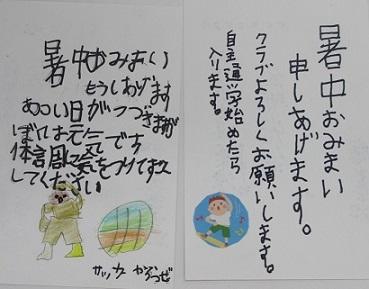 暑中おみまい
もうしあげます
あつい日がつづきますが
ぼくは元気です
体調に気をつけて
してください
サッカー がんばるぜ
暑中おみまい
申しあげます。
クラブよろしくお願いします。
自主通学始めたら
入ります。